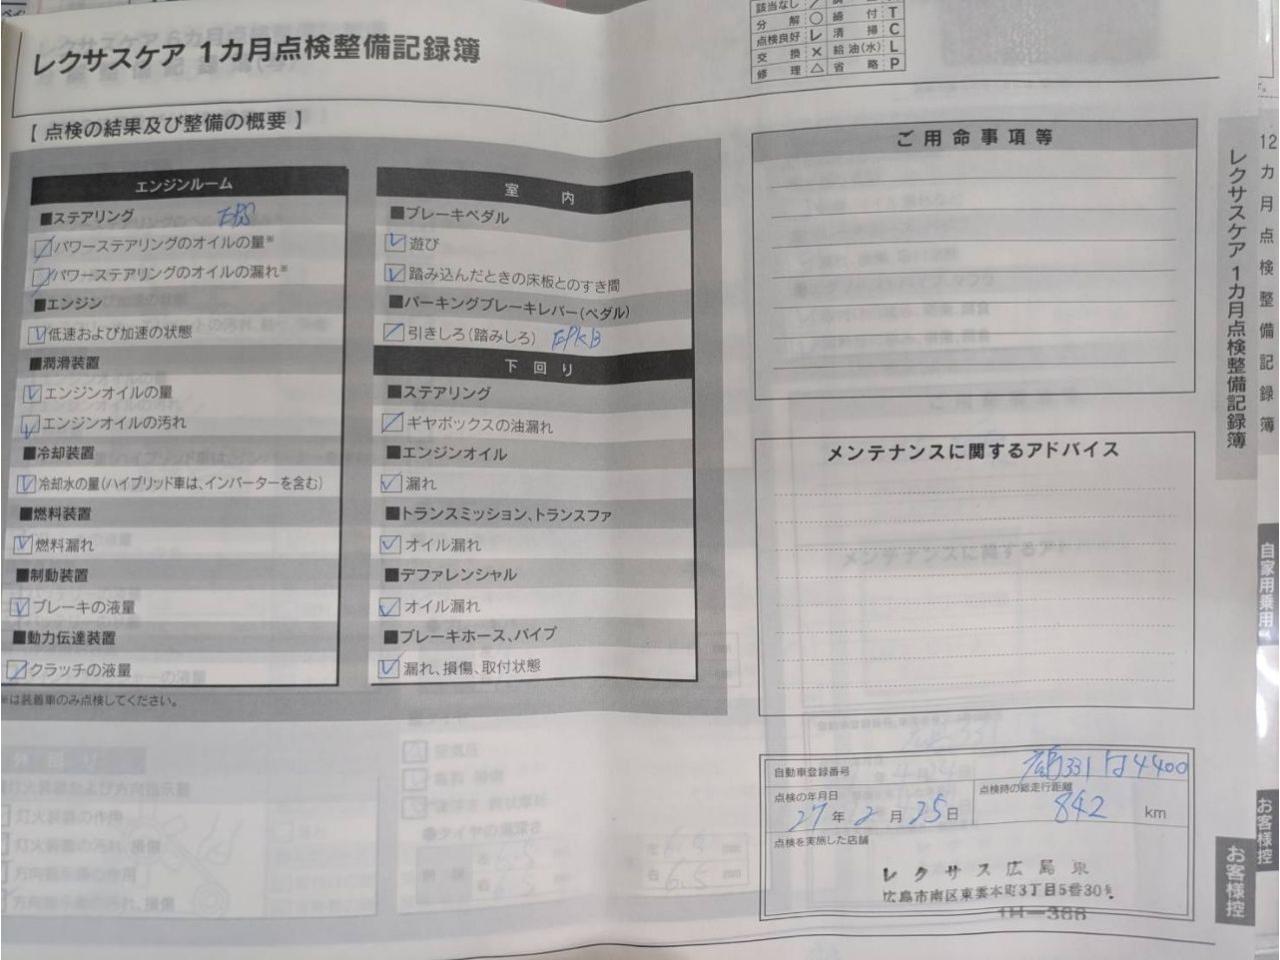 レクサスケア 1カ月点検整備記録簿
該当なし
分解 ○ 締付 T
点検良好 レ 清掃 C
交換 × 給油(水) L
修理 △ 省略 P
【 点検の結果及び整備の概要 】
エンジンルーム
■ステアリング
パワーステアリングのオイルの量※
パワーステアリングのオイルの漏れ※
■エンジン
低速および加速の状態
■潤滑装置
エンジンオイルの量
エンジンオイルの汚れ
■冷却装置
冷却水の量(ハイブリッド車は、インバーターを含む)
■燃料装置
燃料漏れ
■制動装置
ブレーキの液量
■動力伝達装置
クラッチの液量
※は装着車のみ点検してください。
室内
■ブレーキペダル
遊び
踏み込んだときの床板とのすき間
■パーキングブレーキレバー(ペダル)
引きしろ(踏みしろ) EPKB
下回り
■ステアリング
ギヤボックスの油漏れ
■エンジンオイル
漏れ
■トランスミッション、トランスファ
オイル漏れ
■デファレンシャル
オイル漏れ
■ブレーキホース、パイプ
漏れ、損傷、取付状態
ご用命事項等
メンテナンスに関するアドバイス
自動車登録番号 広島331 は4400
点検の年月日 点検時の総走行距離
27年2月25日 842 km
点検を実施した店舗
レクサス広島東
広島市南区東雲本町3丁目5番30号
レクサスケア 1カ月点検整備記録簿
お客様控
12カ月点検整備記録簿
自家用乗用
お客様控